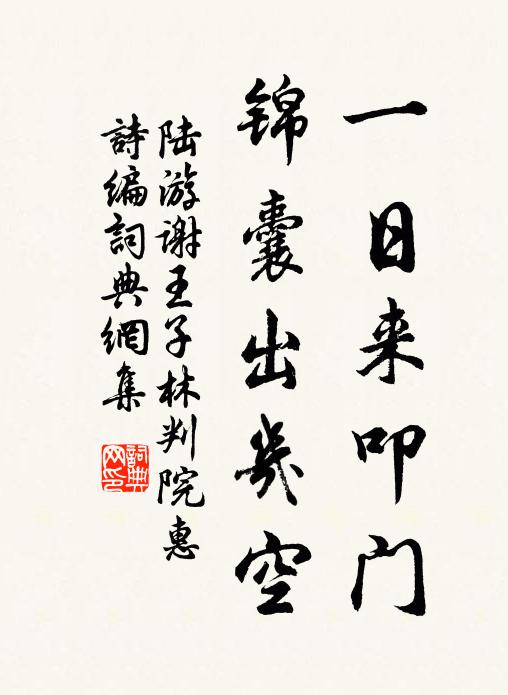 一日来叩门
锦囊出几空
陆游谢王子林判院惠
詩编詞典網集
詞典网印